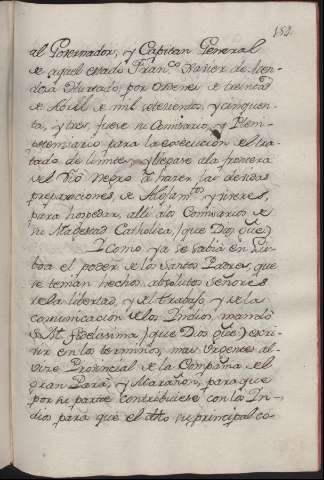 152.
al Governador, y Capitan General
de aquel estado Fran.co Xavier de Men-
doza Hurtado, por Orden de treinta
de Abril de mil setecientos, y cinquen-
ta, y tres, fuese su Comisario, y Pleni-
potenciario para la execucion del tra-
tado de limites, y llegase a la frontera
del Rio Negro a hazer las devidas
preparaciones, de Alojam.tos y viveres,
para hospedar alli a los Comisarios de
su Magestad Catholica (que Dios gue)
Y como ya se sabia en Lis-
boa el poder de los Santos Padres, que
se tenian hechos absolutos señores
de la libertad, y del trabajo, y de la
comunicacion de los Indios, mandó
S. M. fidelisima (que Dios gue) escri-
vir en los terminos mas Urgentes al
Vice Provincial de la Compañia del
gran Pará, y Marañon, para que
por su parte contribuiese con los In-
dios para que el dho su principal co-